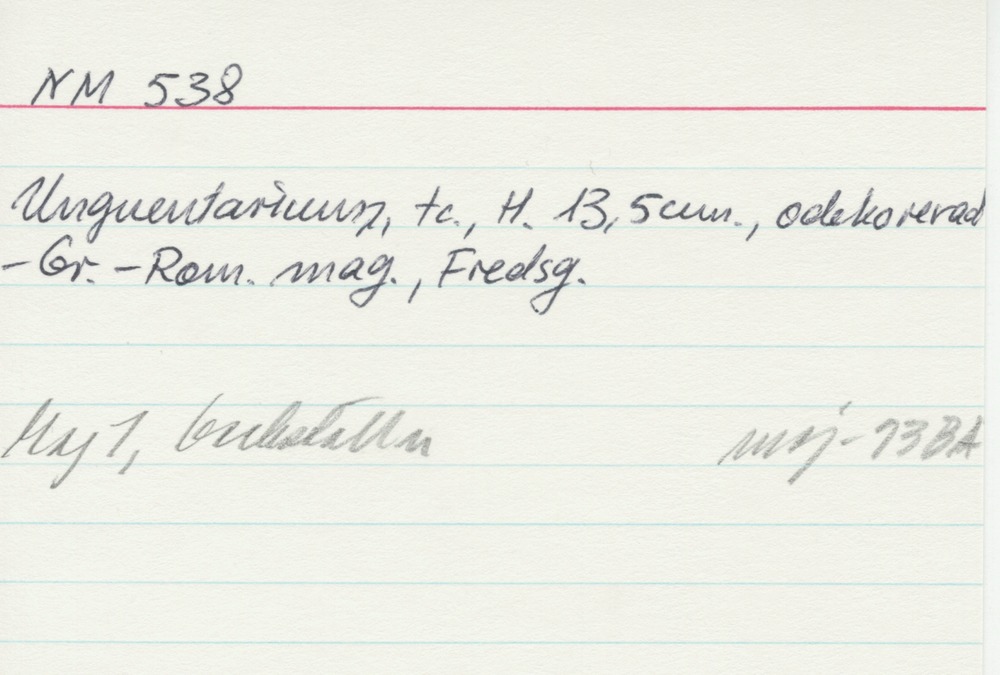 NM 538
Unguentarium, tc., H. 13,5 cm., odekorerad
- Gr. - Rom. mag., Fredsg.
Mag 1,
maj - 93 BA